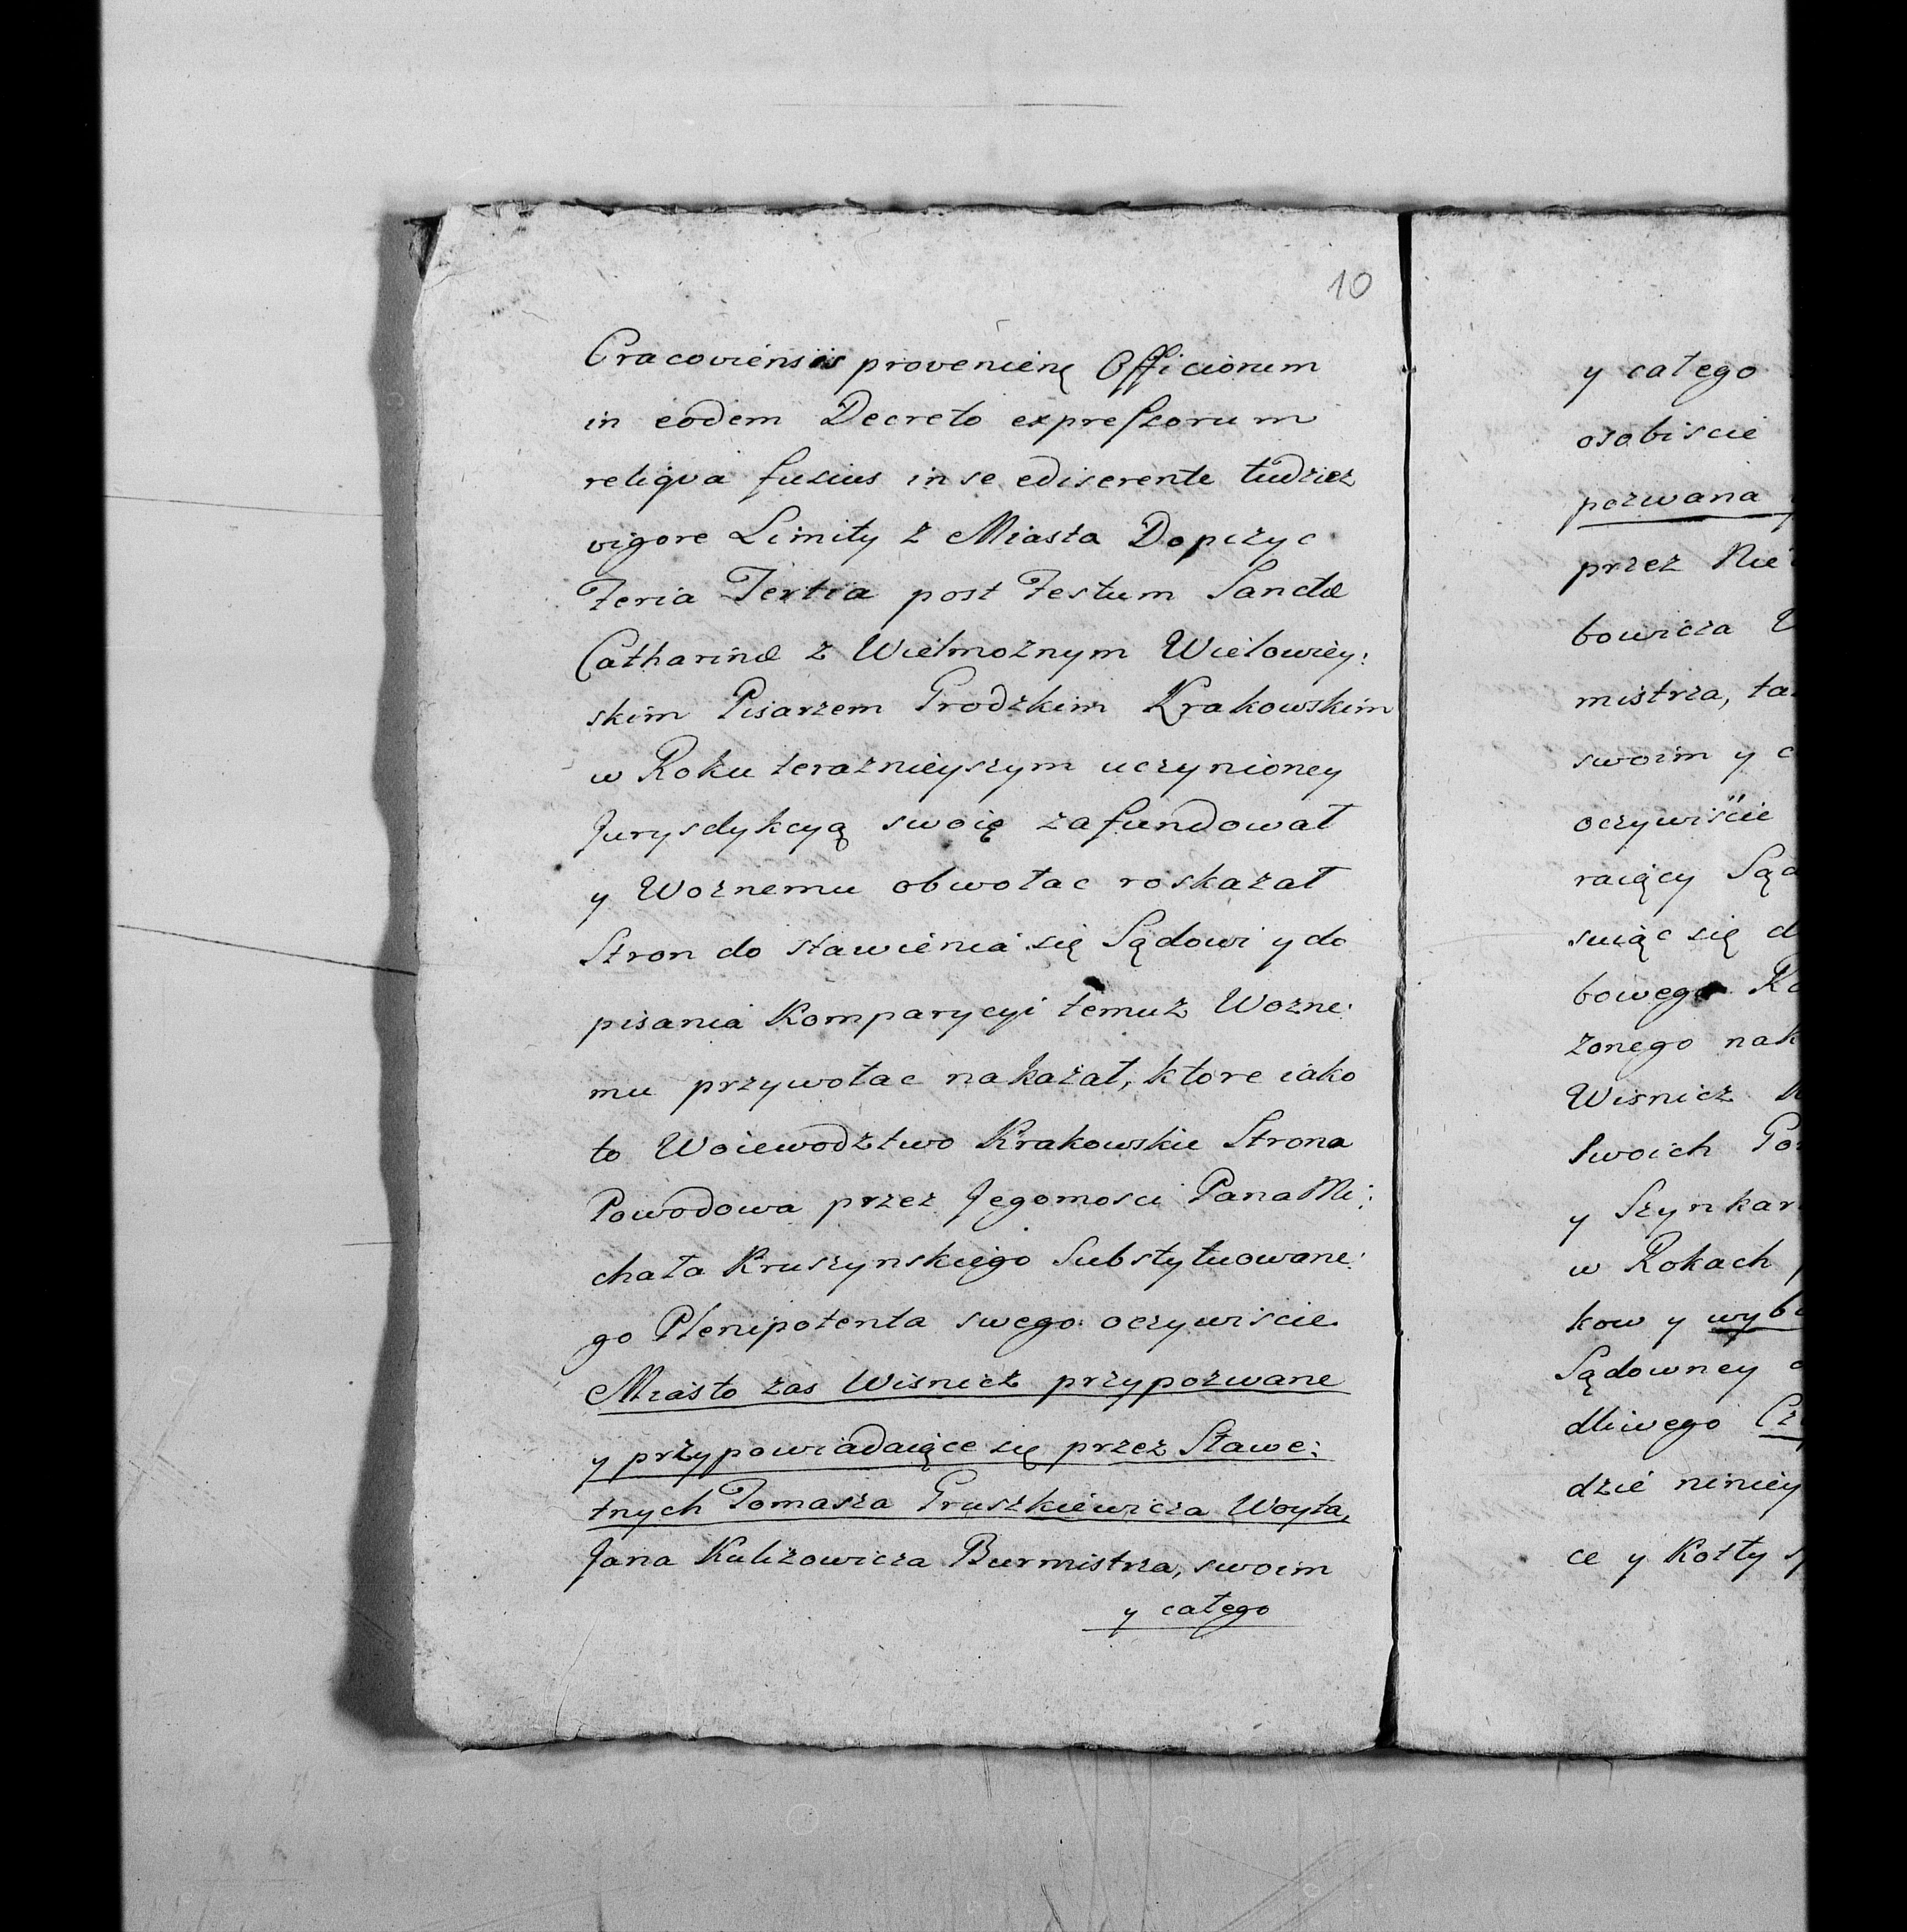 10
Cracoviensis provenienę Officiorum
in eodem Decreto expreſsorum
reliqva fusius in se ediserente tudziez
vigore Limity z Miasta Dopczyc
Feria Tertia post Festum Sanctæ
Catharinæ z Wielmożnym Wielowiey:
skim Pisarzem Grodzkim Krakowskim
w Roku teraznieyszym uczynioney
Jurysdykcyą swoię zafundował
y Woznemu obwołac roskazał
Stron do stawienia się Sądowi y do
pisania Komparycyi temuz Wozne:
mu przywołac nakazał, ktore iako
to Woiewodztwo Krakowskie Strona
Powodowa przez Jegomosci Pana Mi:
chała Kruszynskiego Substytuowane:
go Plenipotenta swego oczywiscie
Miasto zas Wisnicz przypozwane
y przypowiadaiące się przez Sławe:
tnych Tomasza Gruszkiewicza Woyta,
Jana Kulizowicza Burmistrza, swoim
y całego
y całego
osobiscie
pozwana
przez
bowicza
mistrza,
swoim y
oczywiście
raiący
suiąc się
bowego
żonego
Wisnicz
Swoich
y
w Rokach
kow y
Sądowney
dliwego
dzie niniey
ce y Kotły